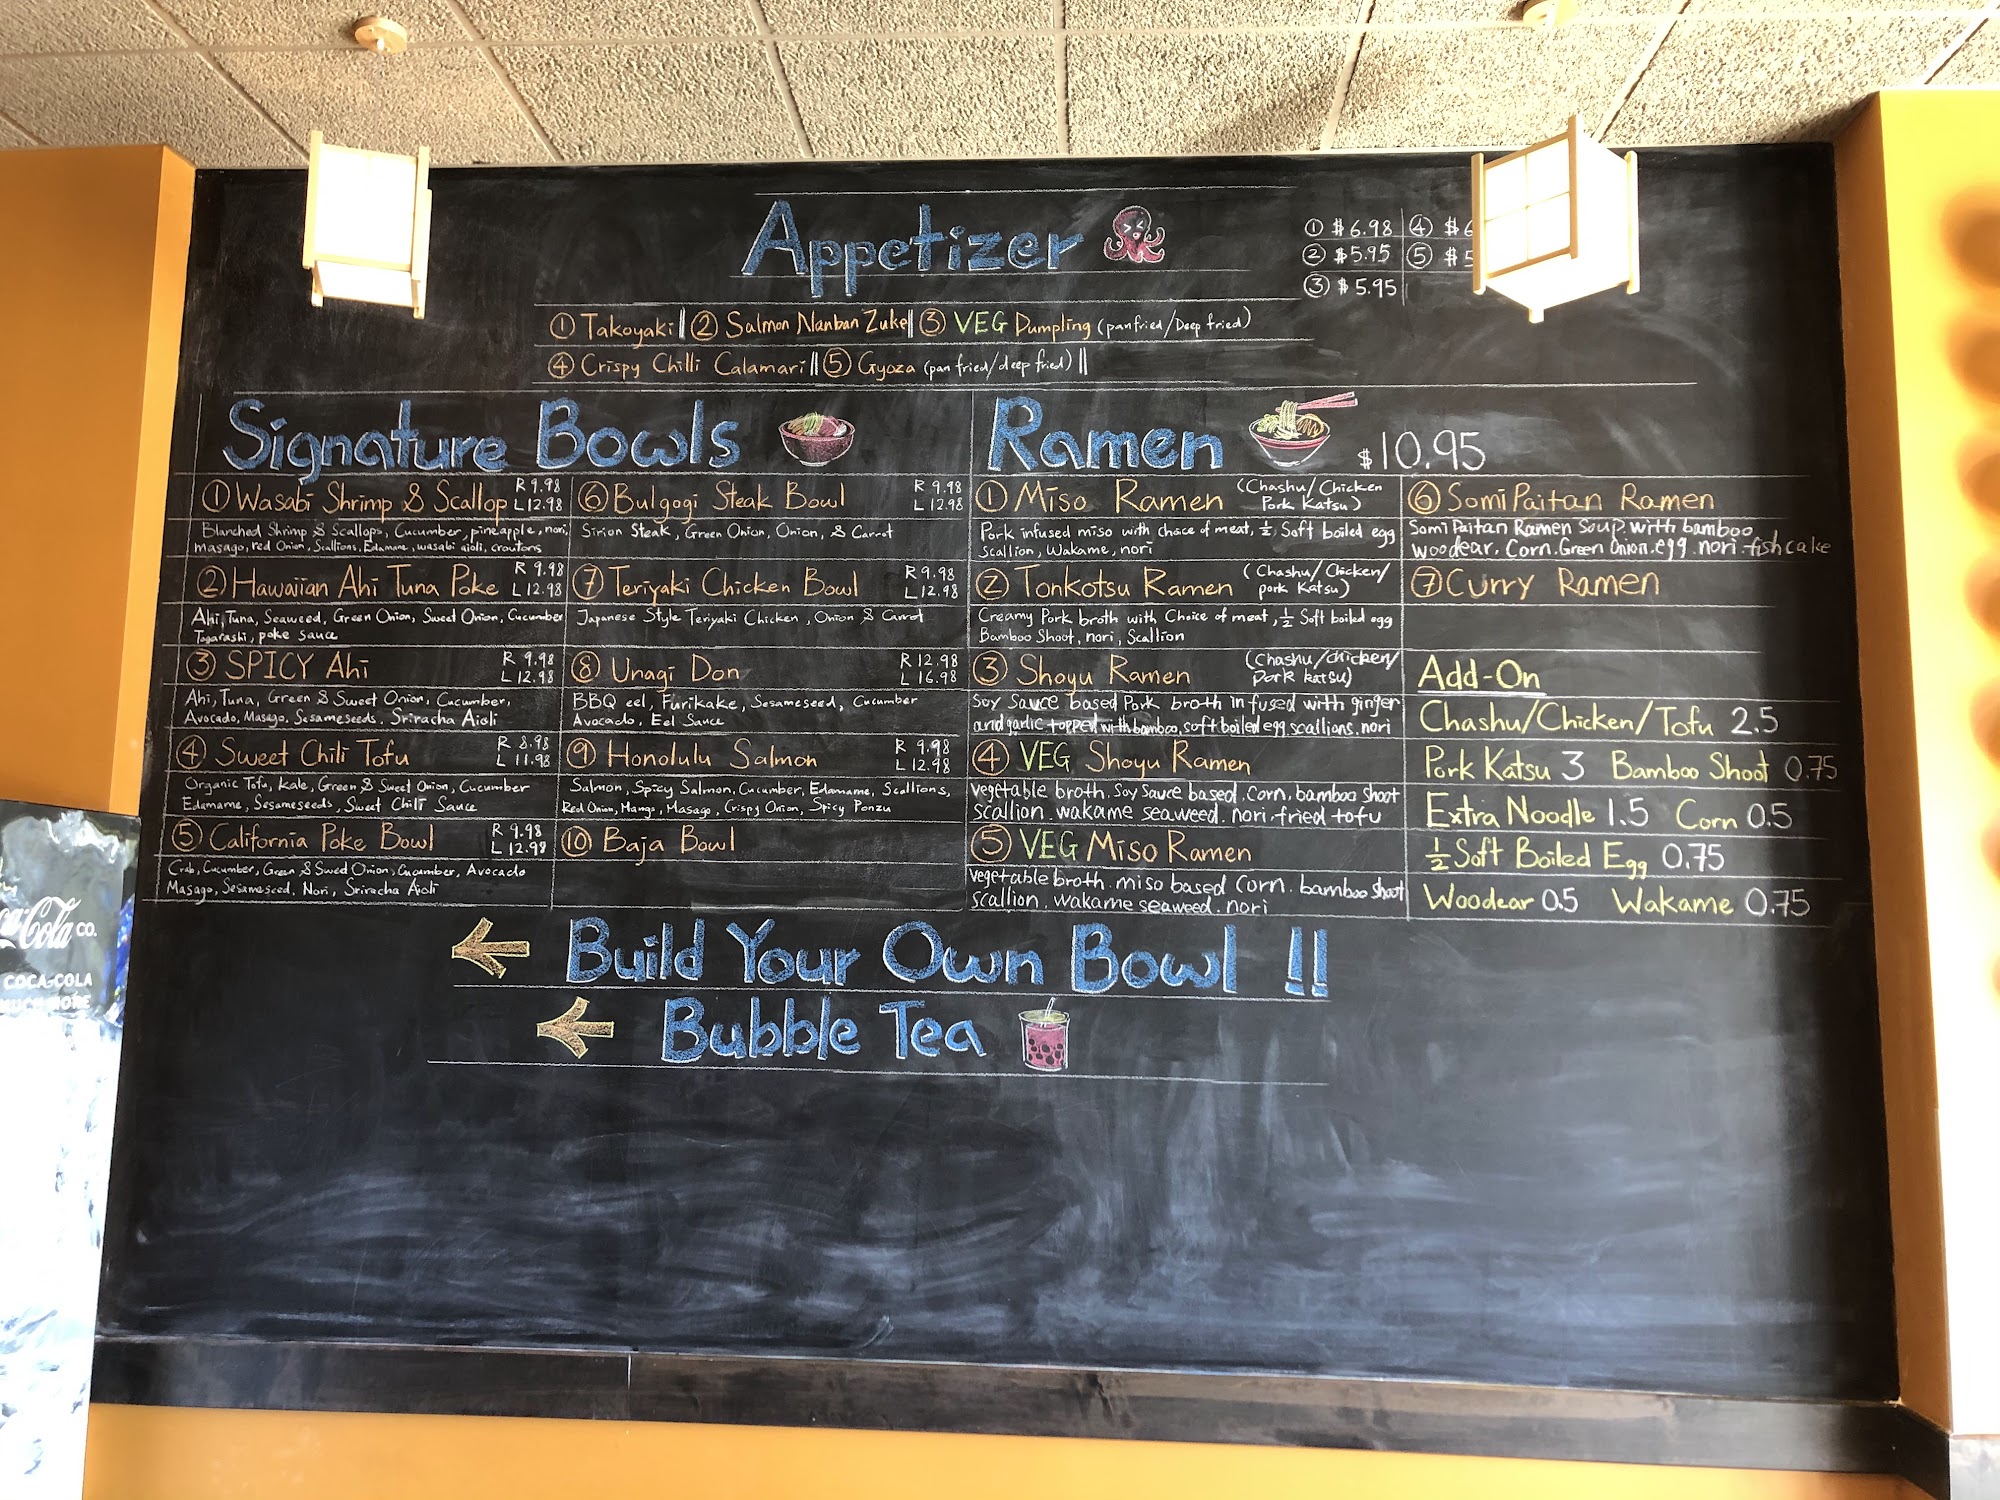 Appetizer
① $6.98 ④ $6
② $5.95 ⑤ $5
③ $5.95
① Takoyaki || ② Salmon Nanban Zuke || ③ VEG Dumpling (panfried/Deep fried)
④ Crispy Chilli Calamari || ⑤ Gyoza (pan fried/deep fried) ||
Signature Bowls
① Wasabi Shrimp & Scallop R 9.98 L 12.98
Blanched Shrimp & Scallops, Cucumber, pineapple, nori,
masago, red Onion, Scallions, Edamame, wasabi aioli, croutons
② Hawaiian Ahi Tuna Poke R 9.98 L 12.98
Ahi, Tuna, Seaweed, Green Onion, Sweet Onion, Cucumber
Togarashi, poke sauce
③ SPICY Ahi R 9.98 L 12.98
Ahi, Tuna, Green & Sweet Onion, Cucumber,
Avocado, Masago, Sesameseeds, Sriracha Aioli
④ Sweet Chili Tofu R 8.98 L 11.98
Organic Tofu, Kale, Green & Sweet Onion, Cucumber
Edamame, Sesameseeds, Sweet Chili Sauce
⑤ California Poke Bowl R 9.98 L 12.98
Crab, Cucumber, Green & Sweed Onion, Cucumber, Avocado
Masago, Sesameseed, Nori, Sriracha Aioli
⑥ Bulgogi Steak Bowl R 9.98 L 12.98
Sirion Steak, Green Onion, Onion, & Carrot
⑦ Teriyaki Chicken Bowl R 9.98 L 12.98
Japanese Style Teriyaki Chicken, Onion & Carrot
⑧ Unagi Don R 12.98 L 16.98
BBQ eel, Furikake, Sesameseed, Cucumber
Avocado, Eel Sauce
⑨ Honolulu Salmon R 9.98 L 12.98
Salmon, Spicy Salmon, Cucumber, Edamame, Scallions,
Red Onion, Mango, Masago, Crispy Onion, Spicy Ponzu
⑩ Baja Bowl
Ramen $10.95
① Miso Ramen (Chashu/Chicken Pork Katsu)
Pork infused miso with choice of meat, ½ Soft boiled egg
Scallion, Wakame, nori
② Tonkotsu Ramen (Chashu/Chicken/ pork Katsu)
Creamy Pork broth with Choice of meat, ½ Soft boiled egg
Bamboo Shoot, nori, Scallion
③ Shoyu Ramen (Chashu/chicken/ pork katsu)
Soy Sauce based Pork broth infused with ginger
and garlic topped with bamboo, soft boiled egg scallions. nori
④ VEG Shoyu Ramen
vegetable broth. Soy Sauce based. corn. bamboo shoot
scallion. wakame seaweed. nori. fried tofu
⑤ VEG Miso Ramen
vegetable broth. miso based corn. bamboo shoot
scallion. wakame seaweed. nori
⑥ Somi Paitan Ramen
Somi Paitan Ramen soup with bamboo
woodear. Corn. Green Onion. egg. nori. fishcake
⑦ Curry Ramen
Add-On
Chashu/Chicken/Tofu 2.5
Pork Katsu 3 Bamboo Shoot 0.75
Extra Noodle 1.5 Corn 0.5
½ Soft Boiled Egg 0.75
Woodear 0.5 Wakame 0.75
← Build Your Own Bowl !!
← Bubble Tea
Cola CO.
COCA-COLA
MUCH MORE